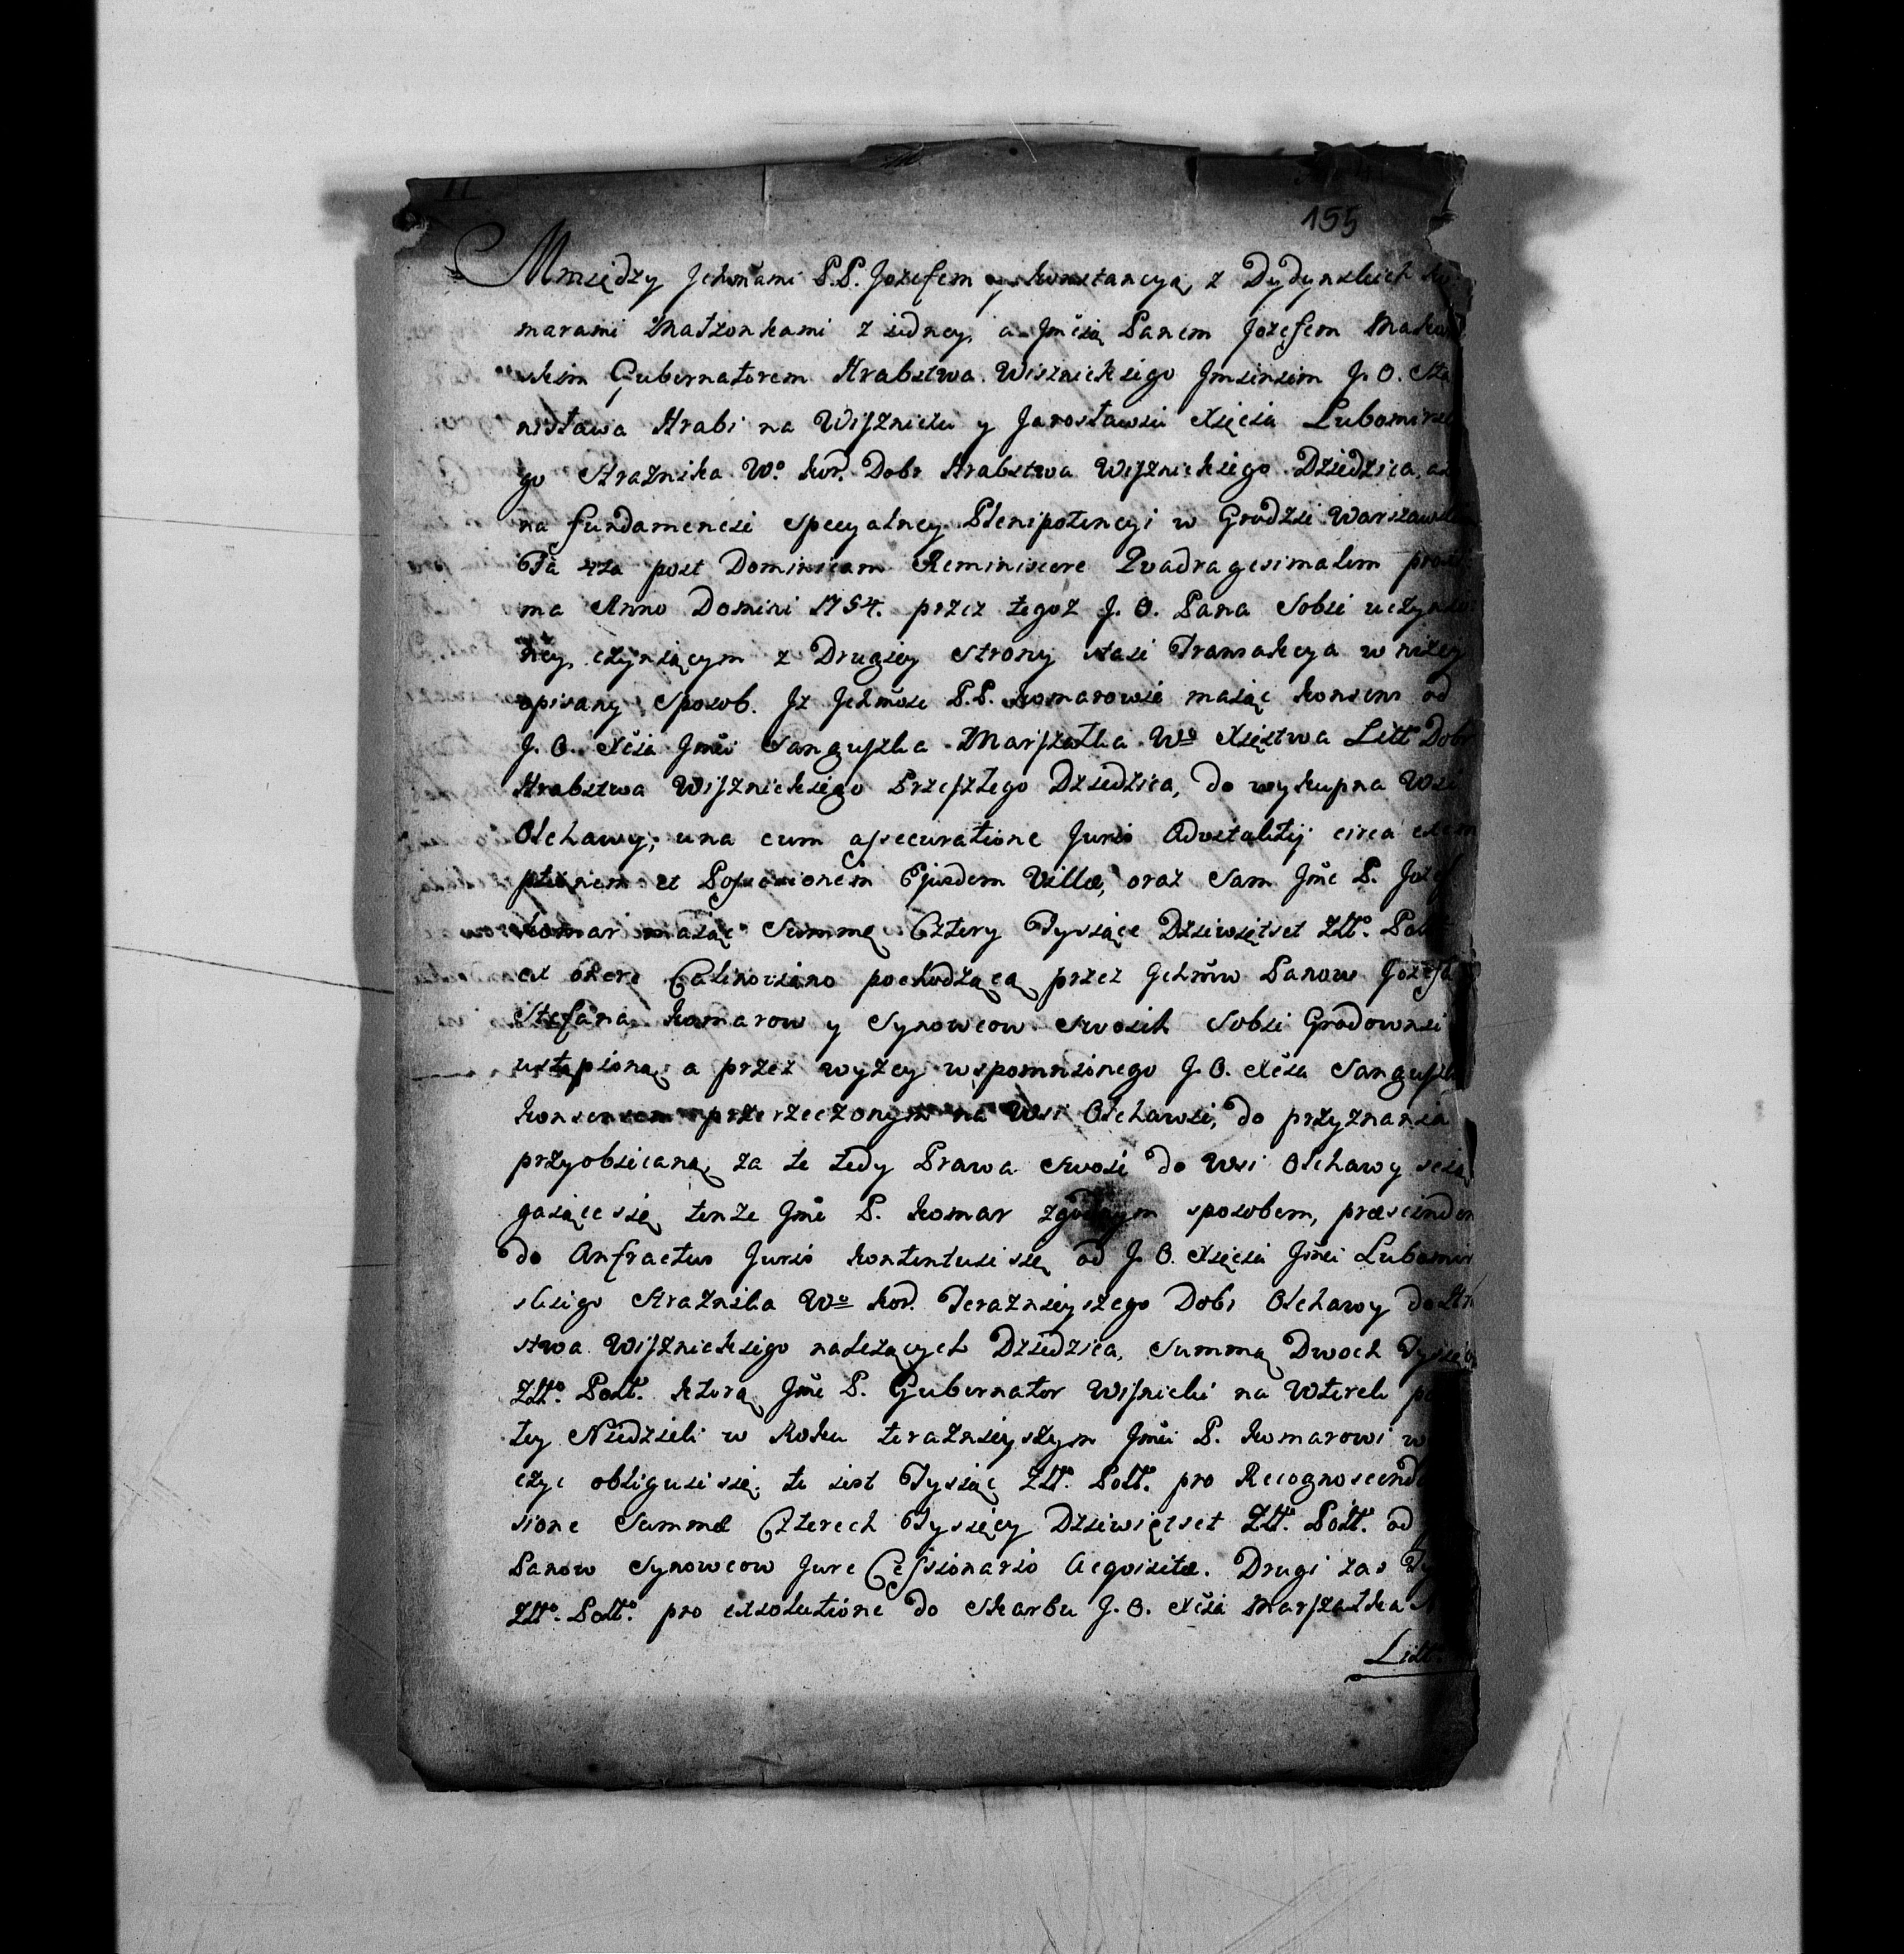 155
Między Jchmciami P.P. Jozefem y Konstancyą z Dydynskich Ko
marami Małzonkami z iedney, a Jmcią Panem Jozefem Makow
skim Gubernatorem Hrabstwa Wisznickiego Jmieniem J. O. Sta
nisława Hrabi na Wiszniczu y Jarosławiu Xięcia Lubomirskie
go Straznika W.º Kor. Dobr Hrabstwa Wisznickiego Dziedzica,
na fundamencie specyalney Plenipotencyi w Grodzie Warszawskim
Fâ 4ta post Dominicam Reminiscere Quadragesimalem proxi
ma Anno Domini 1754. przez tegoz J. O. Pana Sobie uczynio
ney, czyniącym z Drugiey Strony staie Transakcya w nizey
opisany Sposob. Jz Jchmość P.P. Komarowie maiąc konsens od
J. O. Xcia Jmci Sanguszka Marszałka Wº Xięstwa Litt Dobr
Hrabstwa Wisznickiego Przeszłego Dziedzica, do wykupna Wsi
Olchawy, una cum assecuratione Juris Advitalitij circa exem
ptionem et Possessionem Ejusdem Villæ, oraz Sam Jmć P. Jozef
Komar maiąc Summę Cztery Tysiące Dziewięćset Złł. Pol
ex okere Calinoviano pochodzącą przez Jchmciow Panow Jozefa
Stefana Komarow y Synowcow Swoich Sobie Grodownie
ustąpioną a przez wyżey wspomnionego J. O. Xcia Sanguszka
Konsensem przerzeczonym na Wsi Olchawie, do przyznania
przyobiecaną, za te tedy Prawa Swoie do Wsi Olchawy ścią
gaiące się tenże Jmć P. Komar zgodnym sposobem, præscinden
do Anfractus Juris kontentuie się od J. O. Xięcia Jmci Lubomir
skiego Straznika Wº Kor. Teraznieyszego Dobr Olchawy do Hra
stwa Wisznickiego nalezących Dziedzica, Summą Dwoch Tysięcy
Złł. Poll. ktorą Jmć P. Gubernator Wisnicki na Wtorek
tey Niedzieli w Roku teraznieyszym Jmci P. Komarowi
czyc obliguie się, to iest Tysiąc Złł. Poll. pro Recognoscen
sione Summæ Czterech Tysięcy Dziewięćset Złł. Poll. od
Panow Synowcow Jure Cessionario Acquisitæ. Drugi zas
Złł. Poll. pro exsolutione do Skarbu J. O. Xcia Marszałka
Litt.